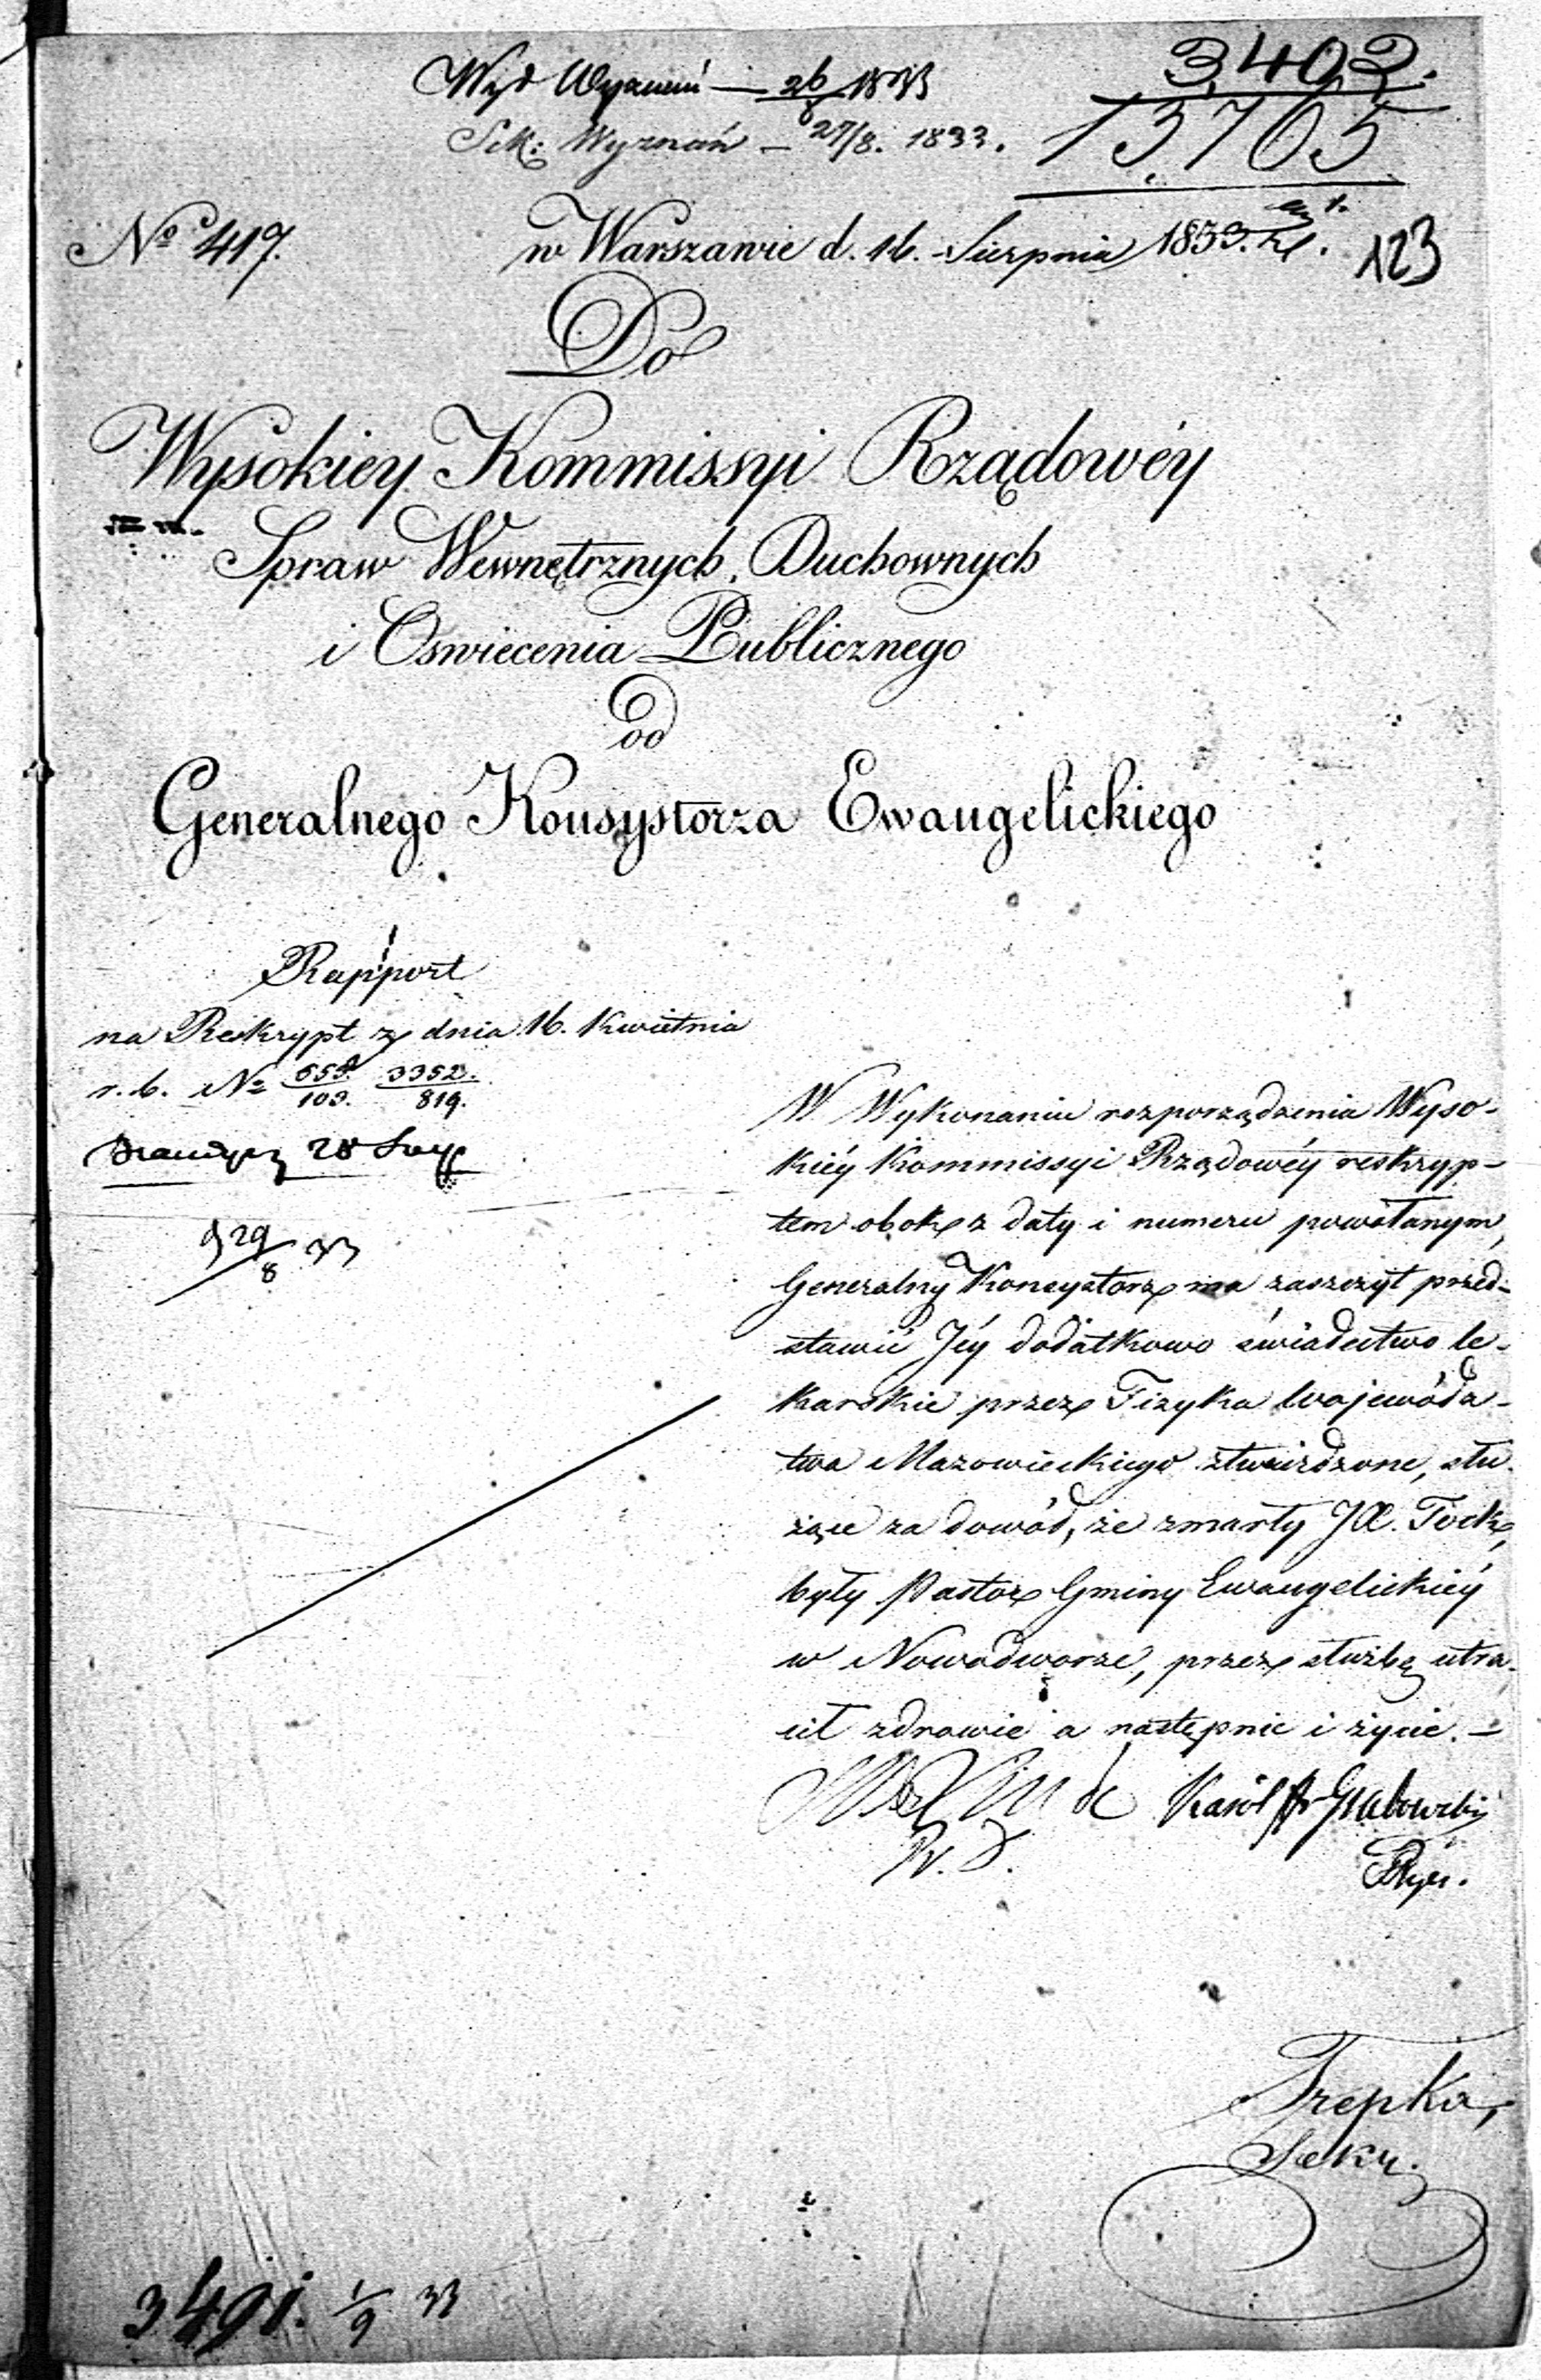 3402.
Wyd Wyznań — 26/8 1833
13705
Sek: Wyznań — 27/8. 1833.
No 417.
w Warszawie d. 16. Sierpnia 1833. r.
123
Do
Wysokiey Kommissyi Rządowéy
Spraw Wewnętrznych, Duchownych
i Oswiecenia Publicznego
od
Generalnego Konsystorza Ewangelickiego
Rapport
na Reskrypt z dnia 16. Kwietnia
r. b. No 3352./819.
W Wykonaniu rozporządzenia Wyso-
kiéy Kommissyi Rządowéy reskryp-
tem obok z daty i numeru powołanym,
Generalny Konsystorz ma zaszczyt przed-
stawić Jéy dodatkowo świadectwo le-
karskie przez Fizyka Wojewódz-
twa Mazowieckiego stwierdzone, słu-
żące za dowód, że zmarły JX. Tock,
były Pastor Gminy Ewangelickiéy
w Nowodworze, przez służbę utra-
cił zdrowie a następnie i życie. —
Karól Grabowski
Trepka,
Sekr.
3491. 1/9 33
29/8 33